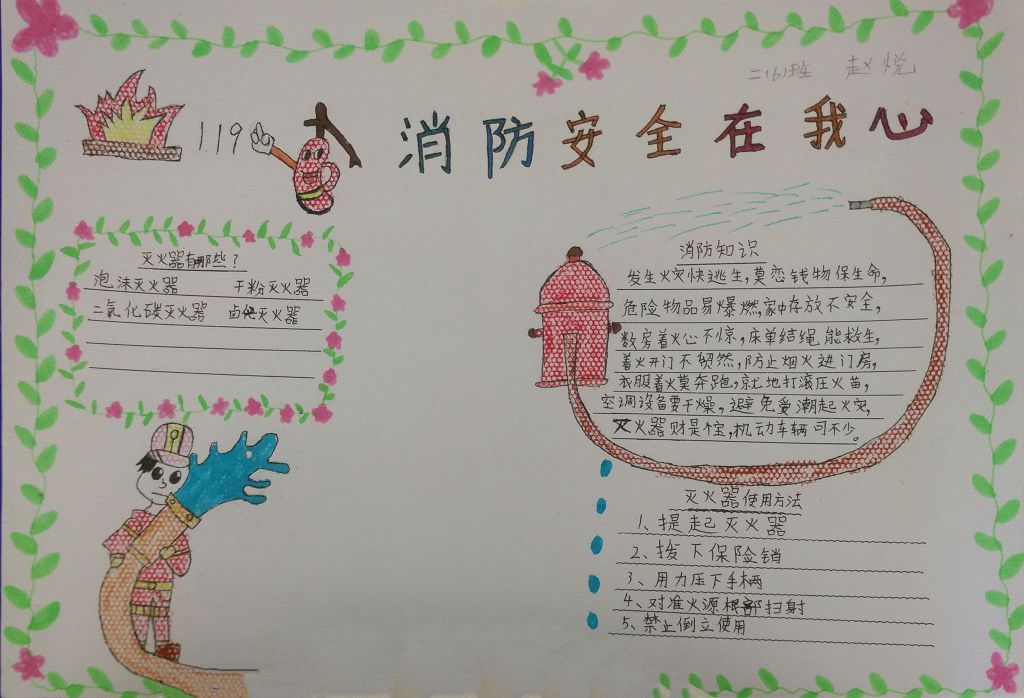 二(6)班 赵悦
119
消防安全在我心
灭火器有哪些?
泡沫灭火器 干粉灭火器
二氧化碳灭火器 卤代灭火器
消防知识
发生火灾快逃生,莫恋钱物保生命,
危险物品易爆燃,家中存放不安全,
数房着火心不惊,床单结绳能救生,
着火开门不贸然,防止烟火进门房,
衣服着火莫奔跑,就地打滚压火苗,
空调设备要干燥,避免受潮起火灾,
灭火器财是个宝,机动车辆可不少。
灭火器使用方法
1、提起灭火器
2、拨下保险销
3、用力压下手柄
4、对准火源根部扫射
5、禁止倒立使用